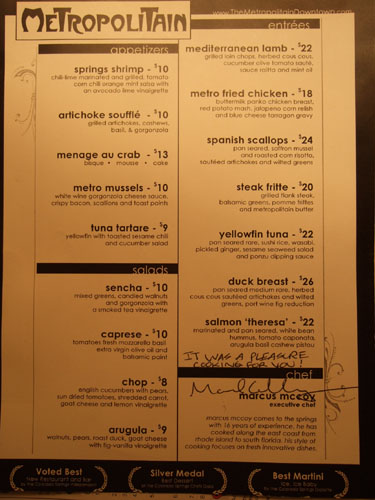 METROPOLITAIN
www.TheMetropolitainDowntown.com
appetizers
springs shrimp - $10
chili-lime marinated and grilled, tomato
corn chili orange mint salsa with
an avocado lime vinaigrette
artichoke soufflé - $10
grilled artichokes, cashews,
basil, & gorgonzola
menage au crab - $13
bisque • mousse • cake
metro mussels - $10
white wine gorgonzola cheese sauce,
crispy bacon, scallions and toast points
tuna tartare - $9
yellowfin with toasted sesame chili
and cucumber salad
salads
sencha - $10
mixed greens, candied walnuts
and gorgonzola with
a smoked tea vinaigrette
caprese - $10
tomatoes fresh mozzarella basil
extra virgin olive oil and
balsamic paint
chop - $8
english cucumbers with pears,
sun dried tomatoes, shredded carrot,
goat cheese and lemon vinaigrette
arugula - $9
walnuts, pears, roast duck, goat cheese
with fig-vanilla vinaigrette
entrées
mediterranean lamb - $22
grilled loin chops, herbed cous cous,
cucumber olive tomato sauté,
sauce rolita and mint oil
metro fried chicken - $18
buttermilk panko chicken breast,
red potato mash, jalapeno corn relish
and blue cheese tarragon gravy
spanish scallops - $24
pan seared, saffron mussel
and roasted corn risotto,
sautéed artichokes and wilted greens
steak fritte - $20
grilled flank steak,
balsamic greens, pomme frittes
and metropolitain butter
yellowfin tuna - $22
pan seared rare, sushi rice, wasabi,
pickled ginger, sesame seaweed salad
and ponzu dipping sauce
duck breast - $26
pan seared medium rare, herbed
cous cous sautéed artichokes and wilted
greens, port wine fig reduction
salmon 'theresa' - $22
marinated and pan seared, white bean
hummus, tomato caponata,
arugula basil cashew pistou
IT WAS A PLEASURE
COOKING FOR YOU!
chef
marcus mccoy
executive chef
marcus mccoy comes to the springs
with 16 years of experience. he has
cooked along the east coast from
rhode island to south florida. his style of
cooking focuses on fresh innovative dishes.
Voted Best
New Restaurant and Bar
By the Colorado Springs Independent
Silver Medal
Best Dessert
Best Martini